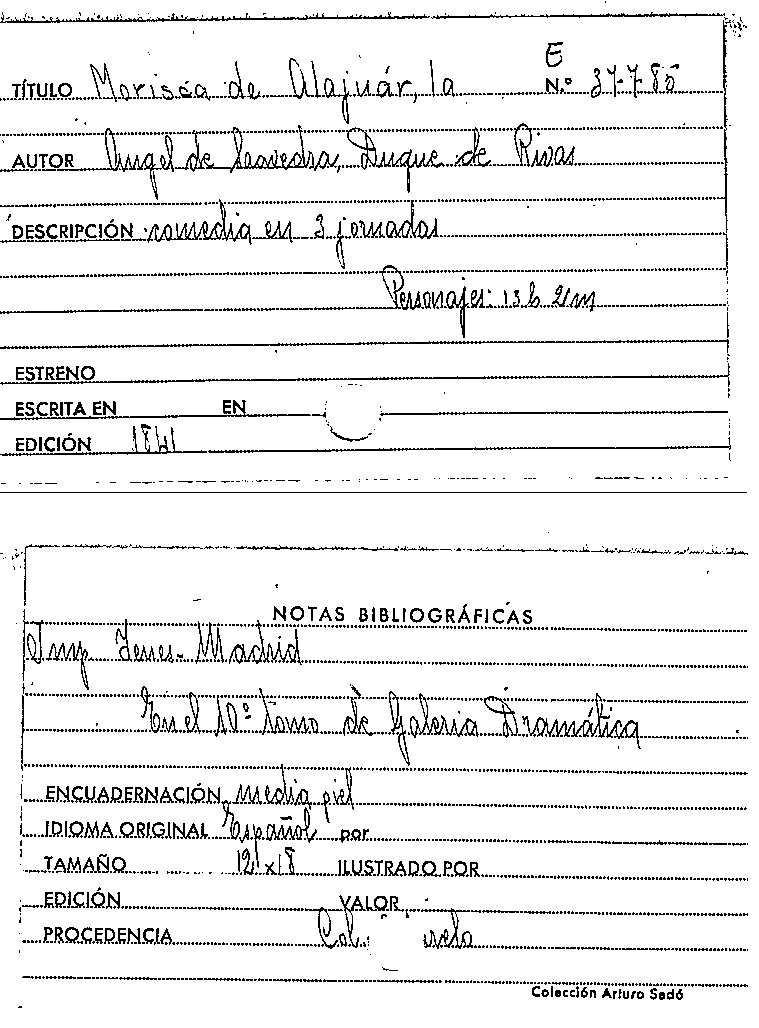 E
TÍTULO Morisca de Alajuár, la N.º 37-7-85
AUTOR Angel de Saavedra, Duque de Rivas
DESCRIPCIÓN comedia en 3 jornadas
Personajes: 13 h 2 m
ESTRENO
ESCRITA EN EN
EDICIÓN 1841
NOTAS BIBLIOGRÁFICAS
Imp Yenes - Madrid
En el 10º tomo de Galeria Dramática
ENCUADERNACIÓN media piel
IDIOMA ORIGINAL Español por
TAMAÑO 12 x 18 ILUSTRADO POR
EDICIÓN VALOR
PROCEDENCIA
Colección Arturo Sedó